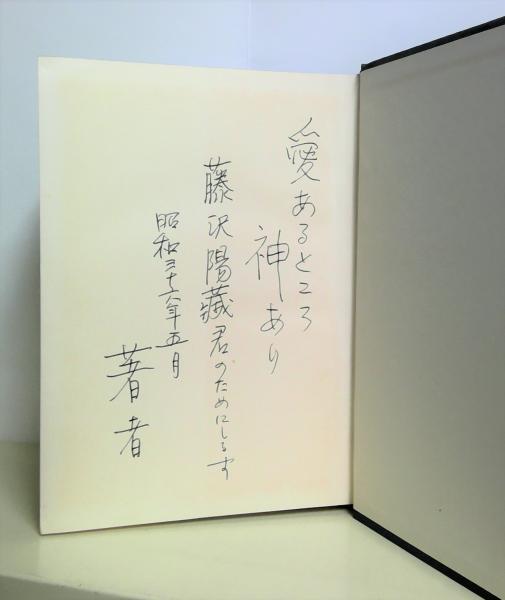 愛あるところ
神あり
藤沢陽蔵君のためにしるす
昭和三十六年五月
著者